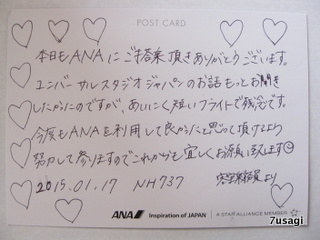 POST CARD
本日もANAにご搭乗頂きありがとうございます。
ユニバーサルスタジオジャパンのお話もっとお聞き
したかったのですが、あいにく短いフライトで残念です。
今後もANAを利用して良かったと思って頂けるよう
努力して参りますのでこれからも宜しくお願い致します
2015.01.17 NH737 客室乗務員より
ANA Inspiration of JAPAN A STAR ALLIANCE MEMBER
7usagi